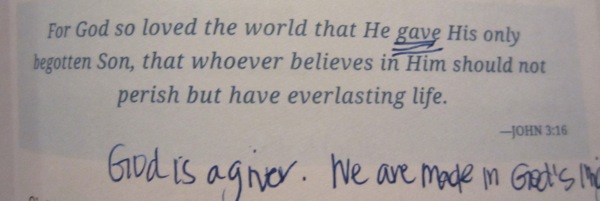 For God so loved the world that He gave His only
begotten Son, that whoever believes in Him should not
perish but have everlasting life.
—JOHN 3:16
God is a giver. We are made in God's